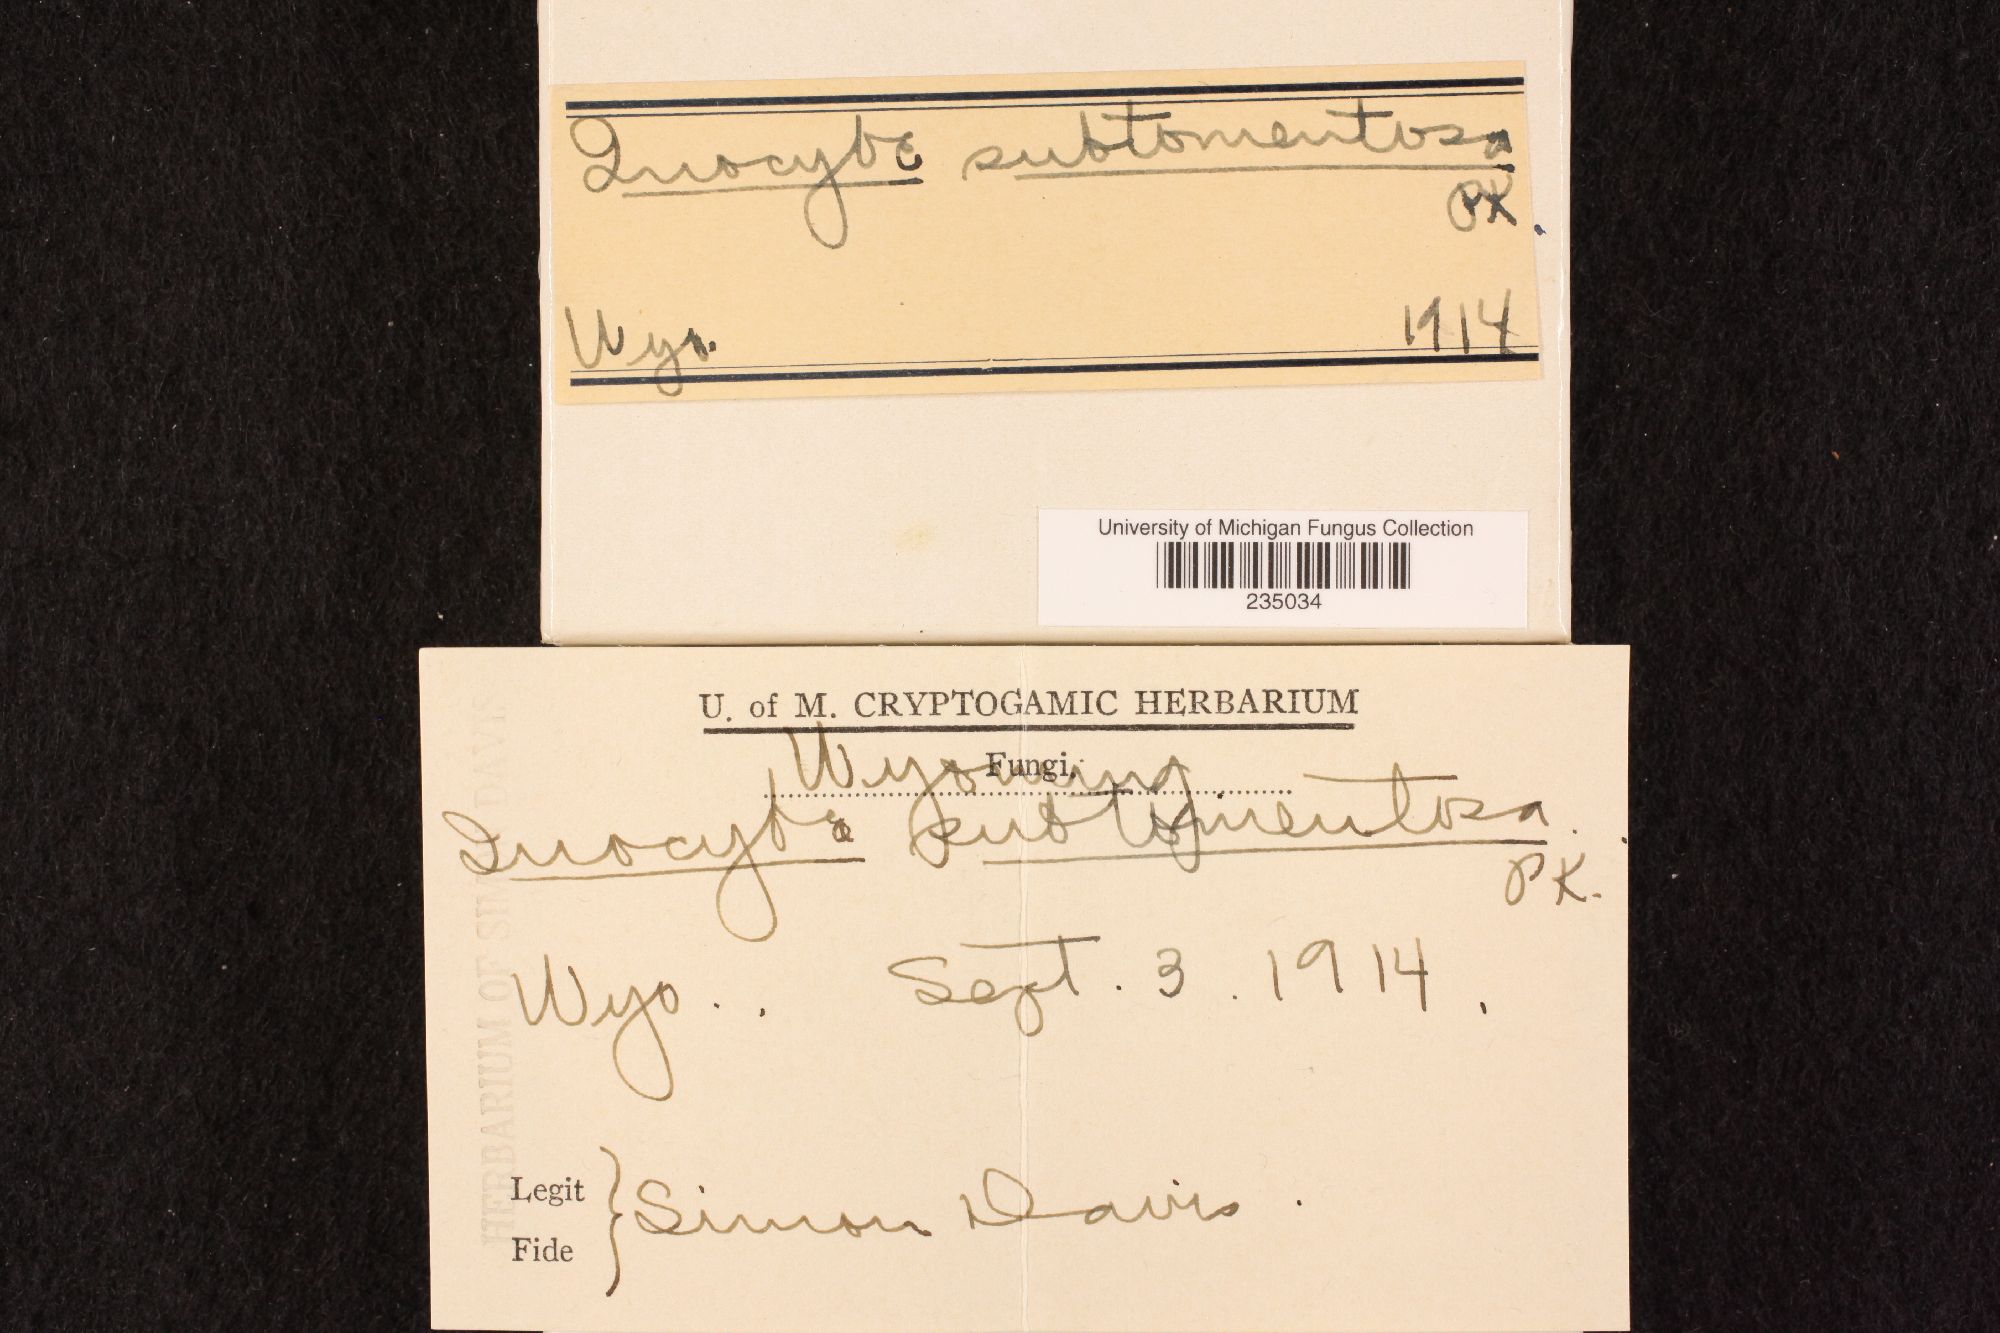 Inocybe subtomentosa
PK.
Wyo. 1914
University of Michigan Fungus Collection
235034
U. of M. CRYPTOGAMIC HERBARIUM
Fungi.
Wyoming
Inocybe subtomentosa.
PK.
Wyo. . Sept. 3. 1914.
Legit
Fide
Simon Davis.
HERBARIUM OF SIMON DAVIS